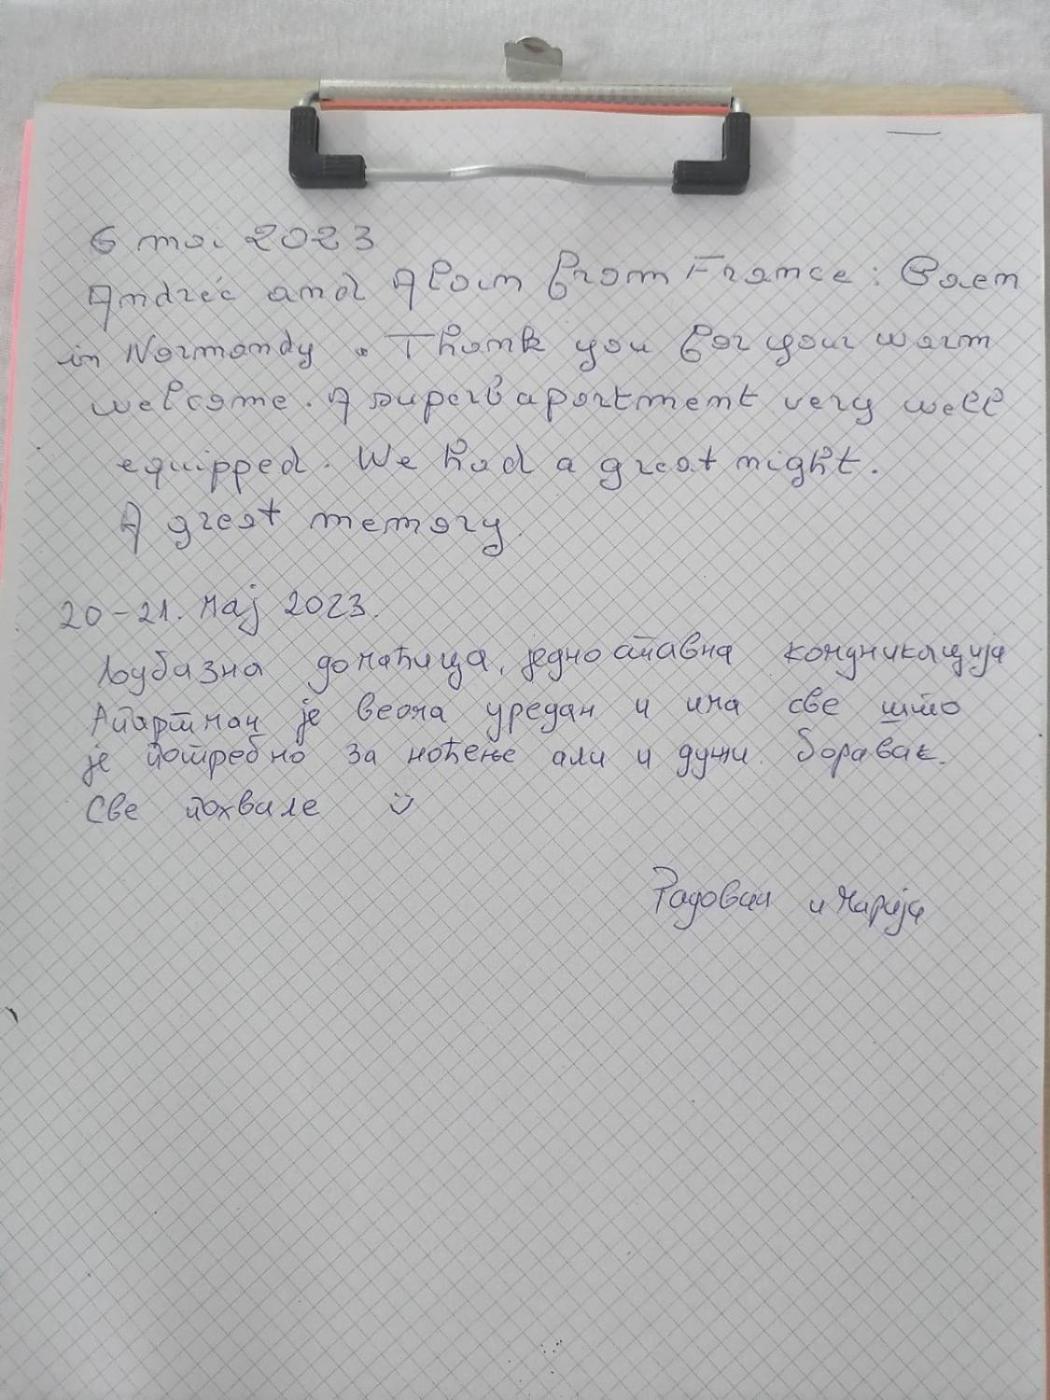 6 mai 2023
Andrée and Alain from France: Caen
in Normandy. Thank you for your warm
welcome. A superb apartment very well
equipped. We had a great night.
A great memory.
20-21. мај 2023.
Љубазна домаћица, једноставна комуникација
Апартман је веома уредан и има све што
је потребно за ноћење али и дужи боравак.
Све похвале ü
Радован и Марија